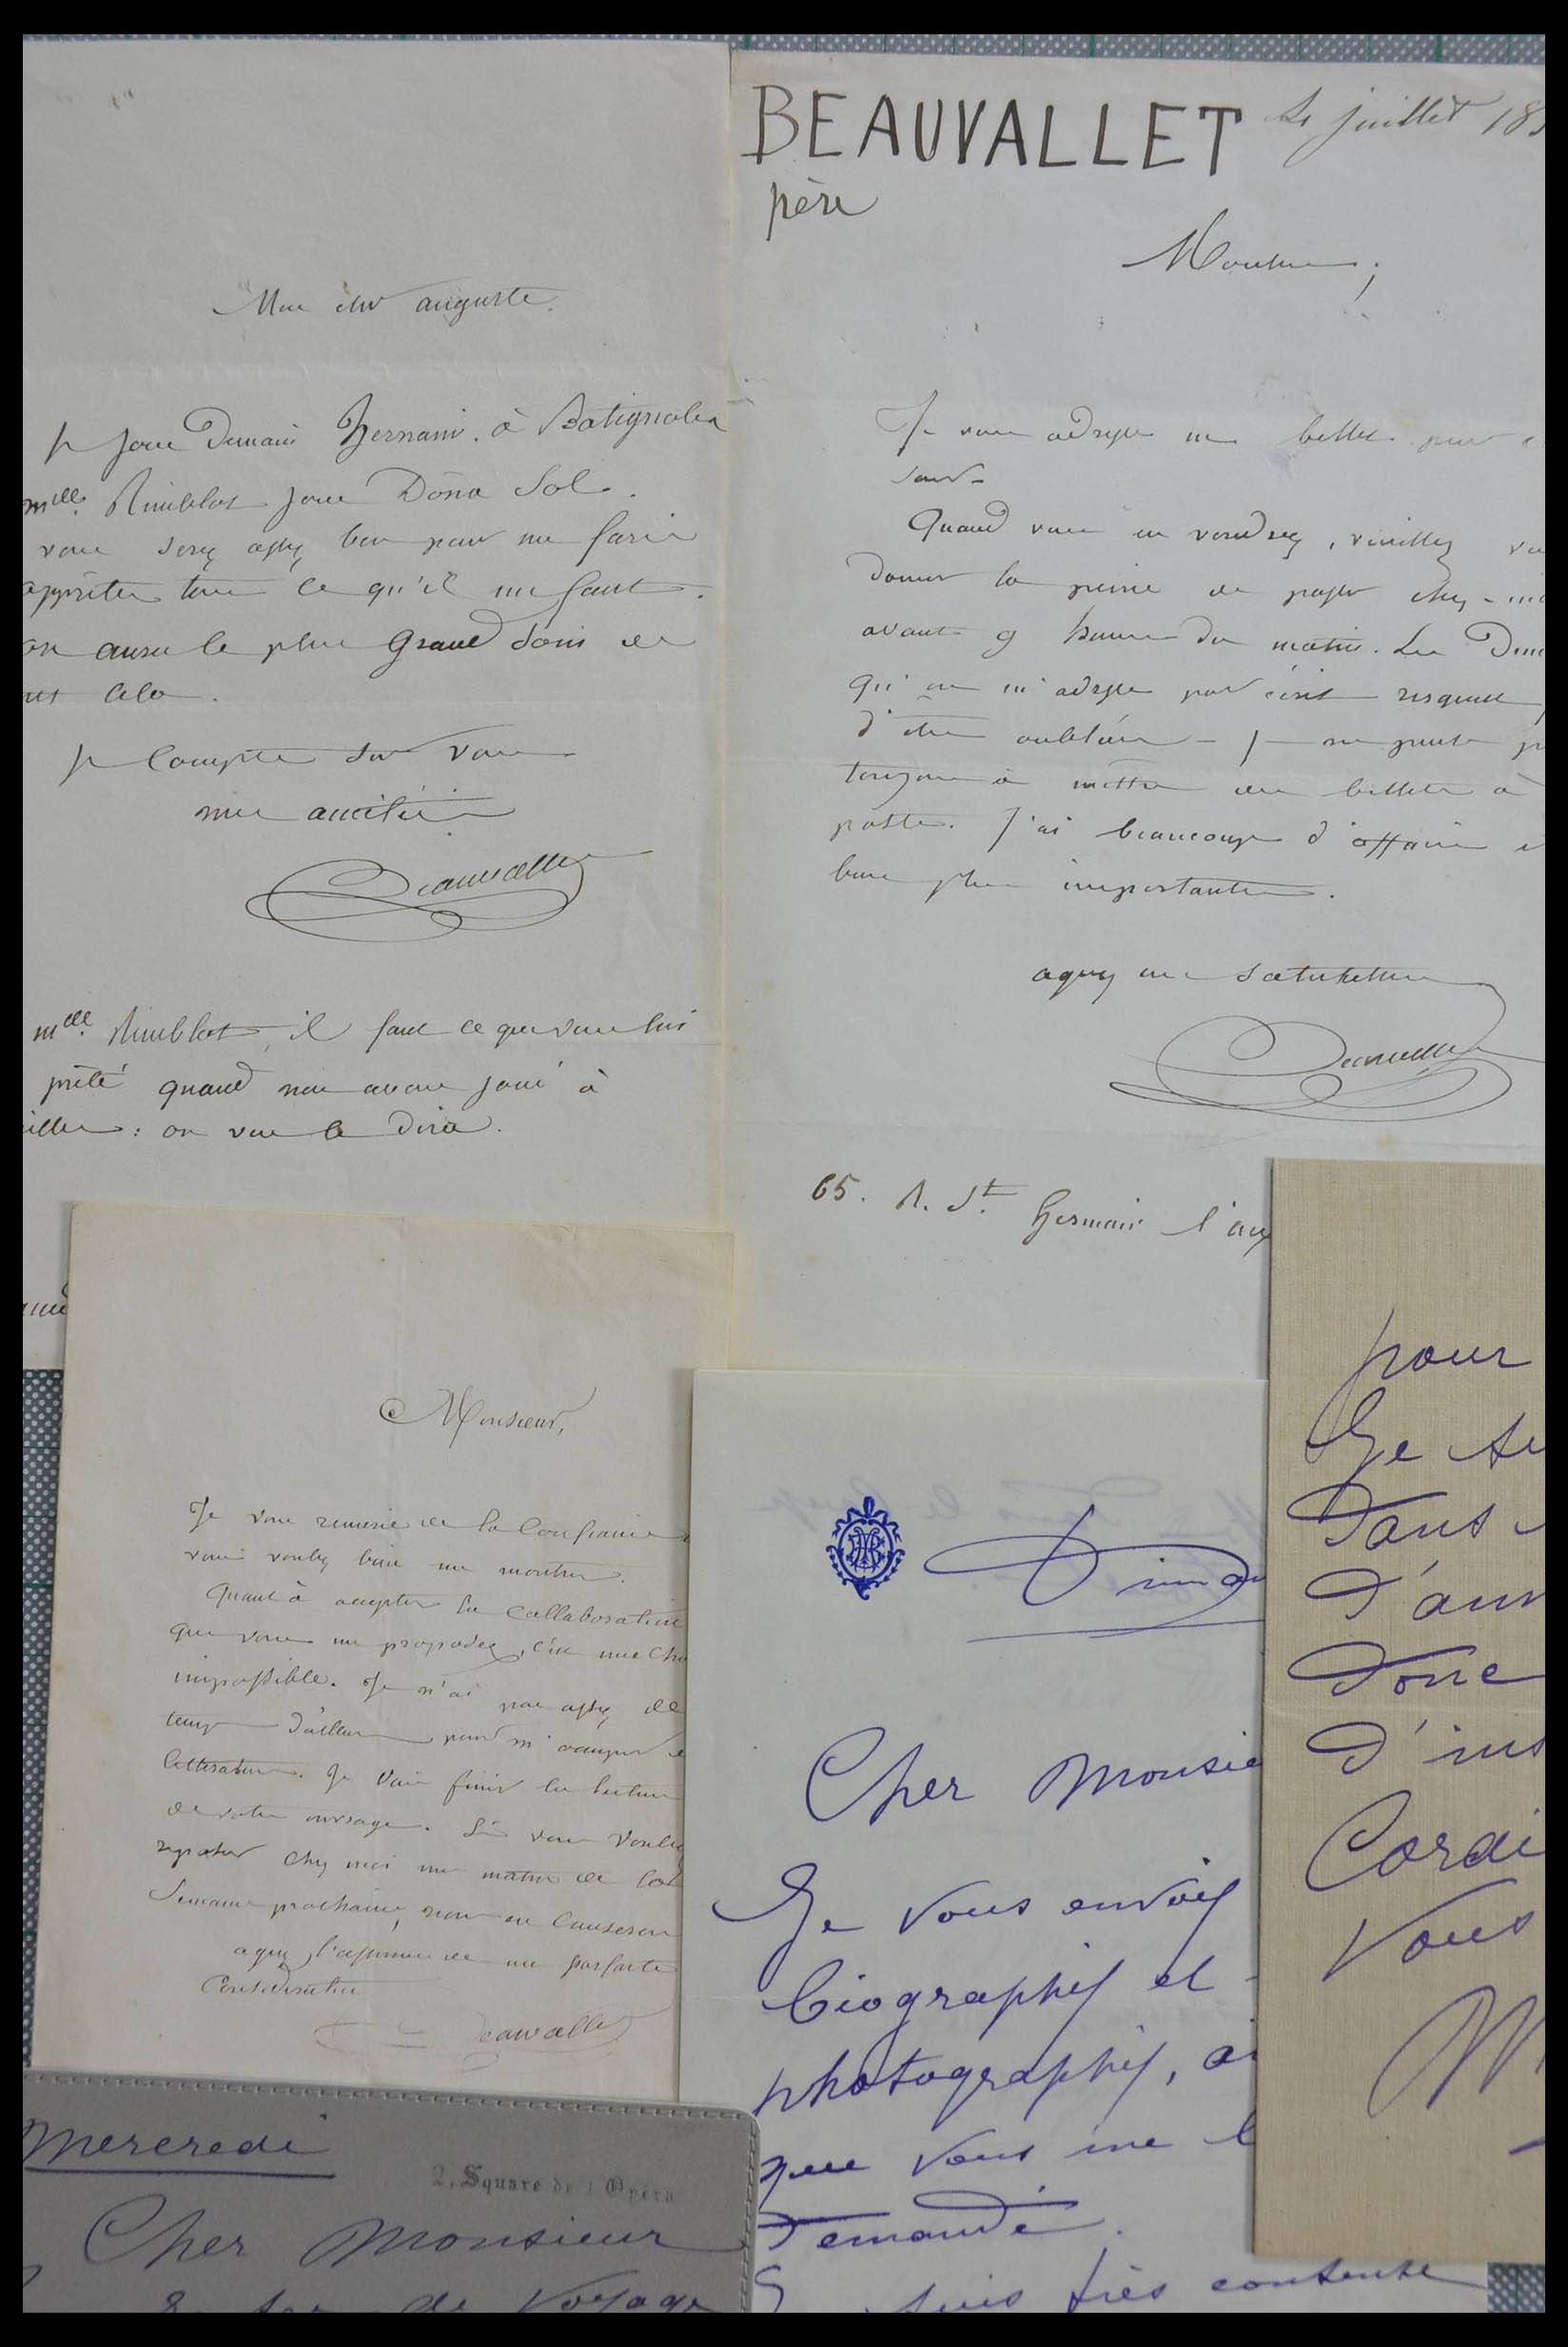 Mon cher auguste.
je joue Demain hernani. à Batignoles
mlle. Rimblot joue Dona Sol.
vous serez assez bon pour me faire
apprêter tout ce qu'il me faut.
on aura le plus Grand soin de
cela.
je compte sur vous
mille amitiés
Beauvallet
mlle. Rimblot, il faut ce que vous lui
prêté quand nous avons joué à
: on vous le dira.
BEAUVALLET
juillet 18
père
Monsieur,
Je vous adresse un billet pour ce
soir.
Quand vous en voudrez, veuillez
donner la peine de passer chez-moi
avant 9 heures du matin. Les
qu'on m'adresse par écrit risquent
d'être oubliées - je ne pense pas
toujours à mettre des billets à
poste. J'ai beaucoup d'affaires
bien plus importantes.
agréez mes salutations
Beauvallet
65. R. St. Germain l'aux
Monsieur,
Je vous remercie de la Confiance
vous voulez bien me montrer.
Quant à accepter la collaboration
que vous me proposez, c'est une cho
impossible. Je n'ai pas assez de
temps d'ailleurs pour m'occuper de
littérature. Je vais finir la lecture
de votre ouvrage. Si vous voulez
repasser chez moi un matin de la
Semaine prochaine, nous en causerons
agréez l'assurance de ma parfaite
Considération
Beauvallet
Diman
Cher Monsie
Je vous envoie
biographie et
photographie, ai
que vous me l
demandé.
suis très contente
pour
Je su
Dans
d'aur
Donc
d'ins
Cordi
Vous
M
Mercredi
2, Square de l'Opéra
Cher Monsieur
de voyage